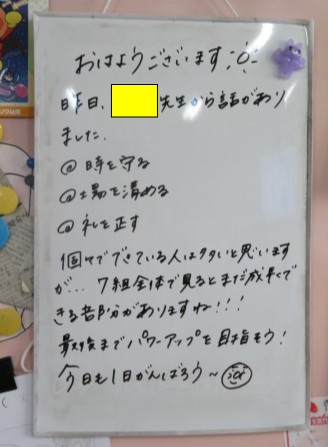 おはようございます
昨日、先生から話があり
ました。
@時を守る
@場を清める
@礼を正す
個々でできている人は多いと思います
が… 7組全体で見るとまだ成長で
きる部分がありますね!!!
最後までパワーアップを目指そう!
今日も1日がんばろう～